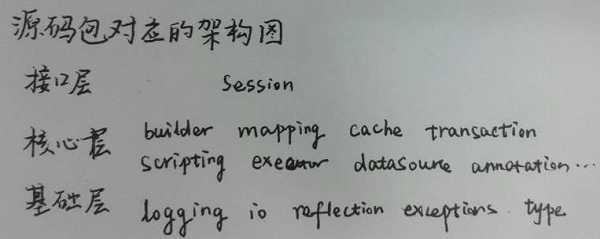 源码包对应的架构图
接口层 Session
核心层 builder mapping cache transaction
scripting executor datasource annotation...
基础层 logging io reflection exceptions type